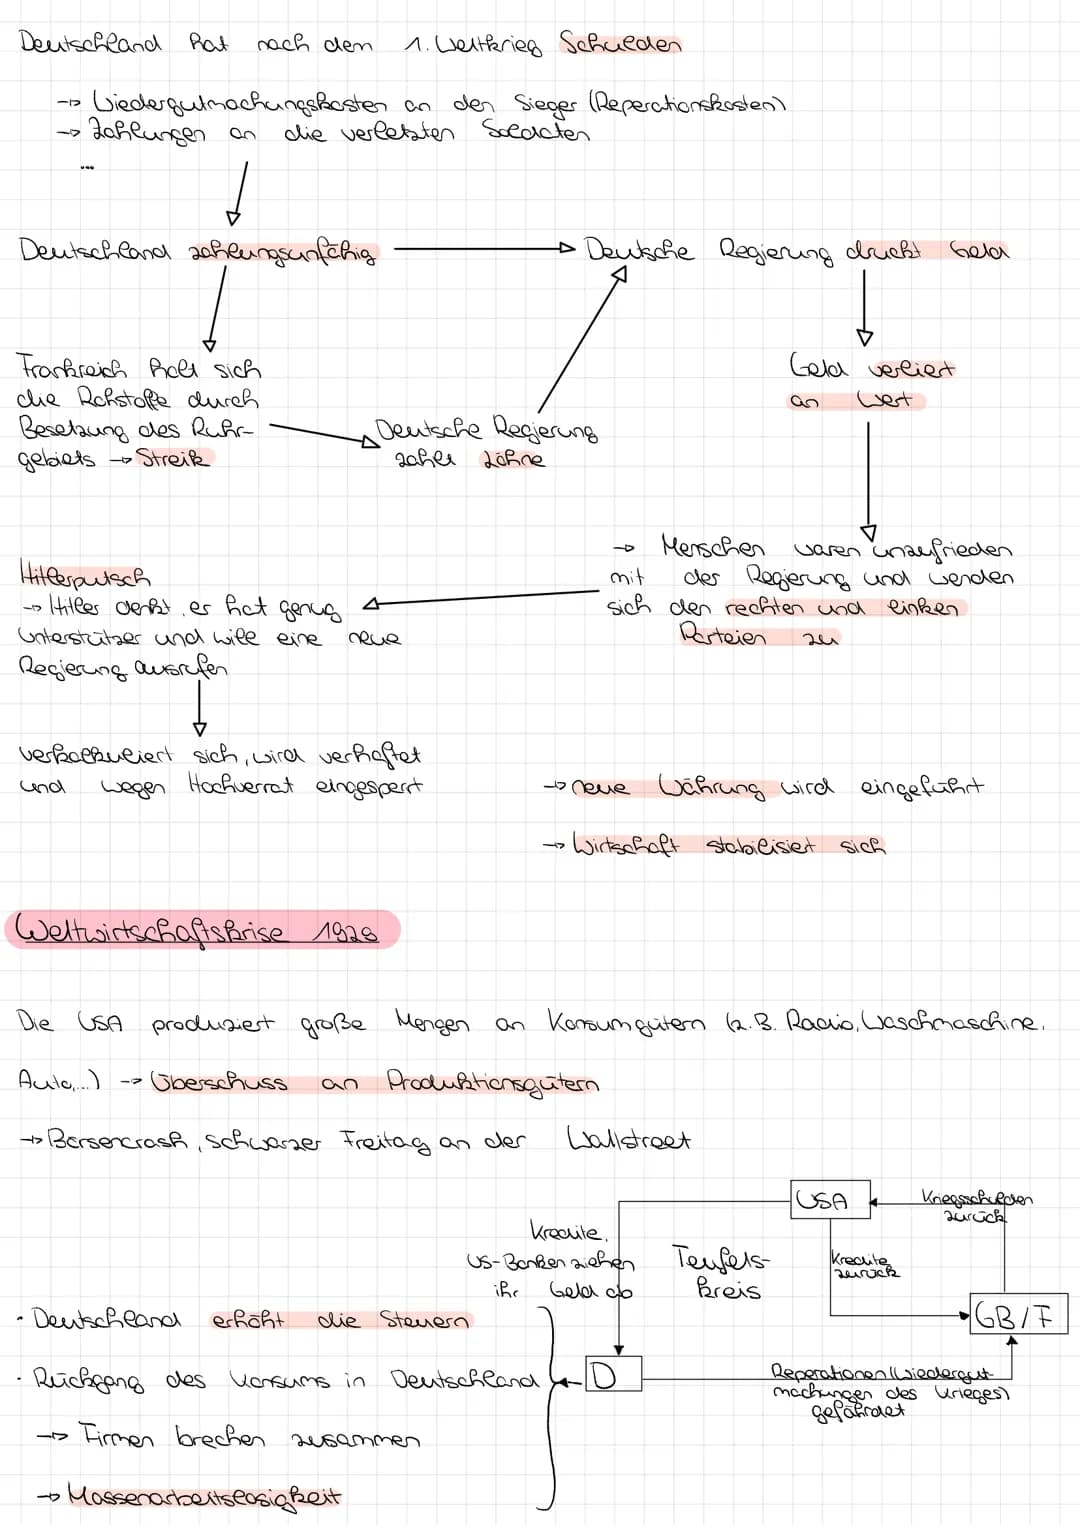 Deutschland hat nach dem 1. Weltkrieg Schulden
→ Wiedergutmachungskosten an den Sieger (Reperationskosten)
→ Zahlungen an die verletzten Soldaten
...
Deutschland zahlungsunfähig → Deutsche Regierung druckt Geld
Frankreich holt sich
die Rohstoffe durch
Besetzung des Ruhr-
gebiets → Streik
Deutsche Regierung
zahlt Löhne
Geld verliert
an Wert
→ Menschen waren unzufrieden
mit der Regierung und wenden
sich den rechten und linken
Parteien zu
Hitlerputsch
→ Hitler denkt, er hat genug
Unterstützer und will eine neue
Regierung ausrufen
verkalkuliert sich, wird verhaftet
und wegen Hochverrat eingesperrt
→ neue Währung wird eingeführt
→ Wirtschaft stabilisiert sich
Weltwirtschaftskrise 1928
Die USA produziert große Mengen an Konsumgütern (z.B. Radio, Waschmaschine,
Auto,...) → Überschuss an Produktionsgütern
→ Börsencrash, schwarzer Freitag an der Wallstreet
USA
Kriegsschulden
zurück
Kredite,
US-Banken ziehen
ihr Geld ab
Teufels-
kreis
Kredite
zurück
GB/F
D
Reperationen (Wiedergut-
machungen des Krieges)
gefährdet
· Deutschland erhöht die Steuern
· Rückgang des Konsums in Deutschland
→ Firmen brechen zusammen
→ Massenarbeitslosigkeit